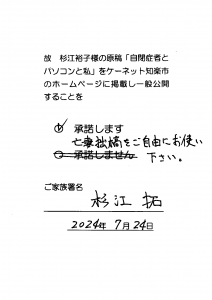 故　杉江裕子様の原稿「自閉症者と
パソコンと私」をケーネット知楽市
のホームページに掲載し一般公開
することを
承諾します
亡妻拙稿をご自由にお使い
下さい。
承諾しません
ご家族署名
杉江 拓
2024年 7月24日